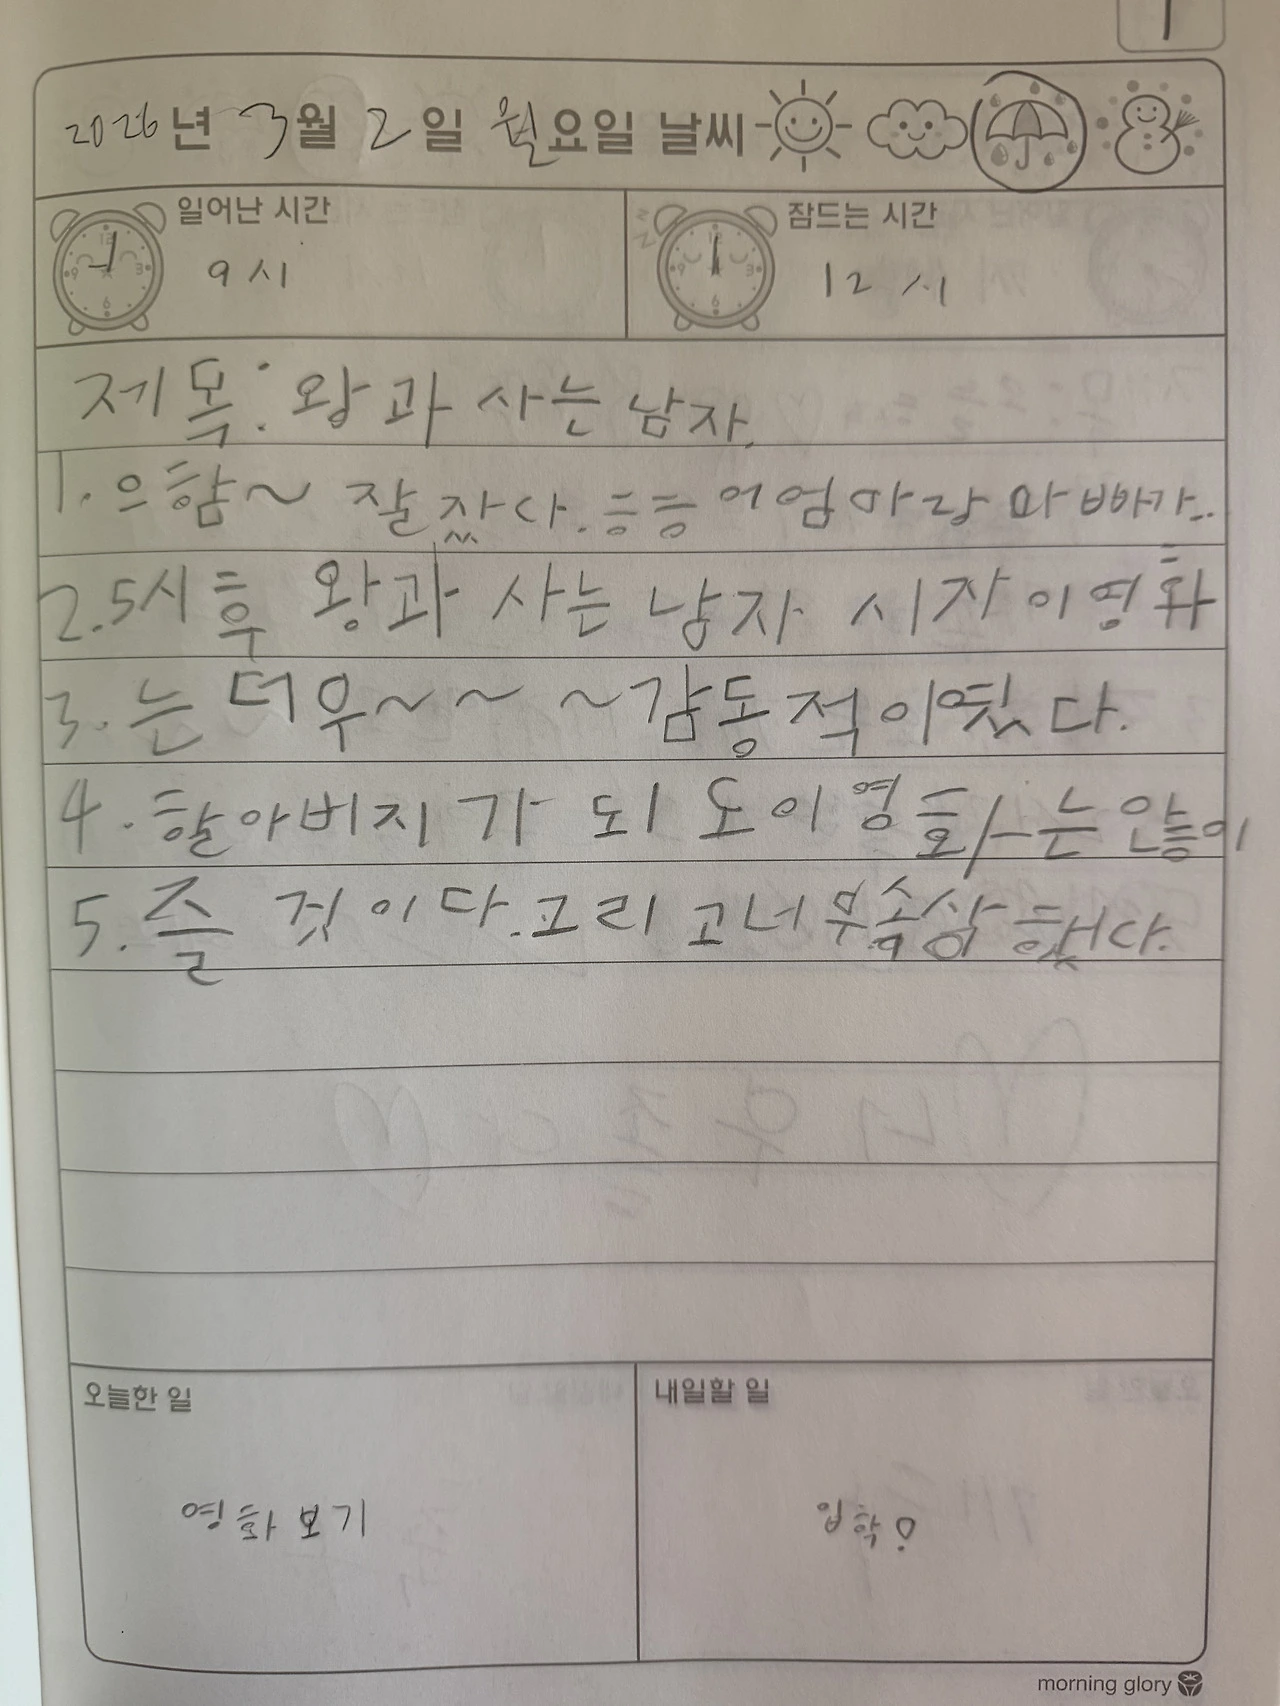 1
2026년 3월 2일 월요일 날씨
일어난 시간
9시
잠드는 시간
12시
제목: 왕과 사는 남자.
1. 으함~ 잘잤다. 흐흐 어 엄마랑 아빠가..
2. 5시 후 왕과 사는 남자 시작 이 영화
3. 는 더우~ ~ ~감동적이였다.
4. 할아버지가 되도 이 영화는 안흥이
5. 즐 것이다. 그리고 너무 속상했다.
오늘한 일
영화보기
내일할 일
입학!
morning glory